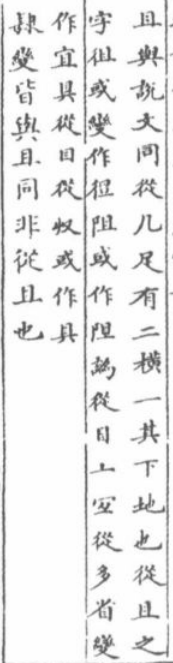 且與說文同從几足有二橫一其下地也從且之
字徂或變作徂阻或作阻詾從目上宜從多省變
作宜具從目從収或作具
隸變皆與且同非從且也